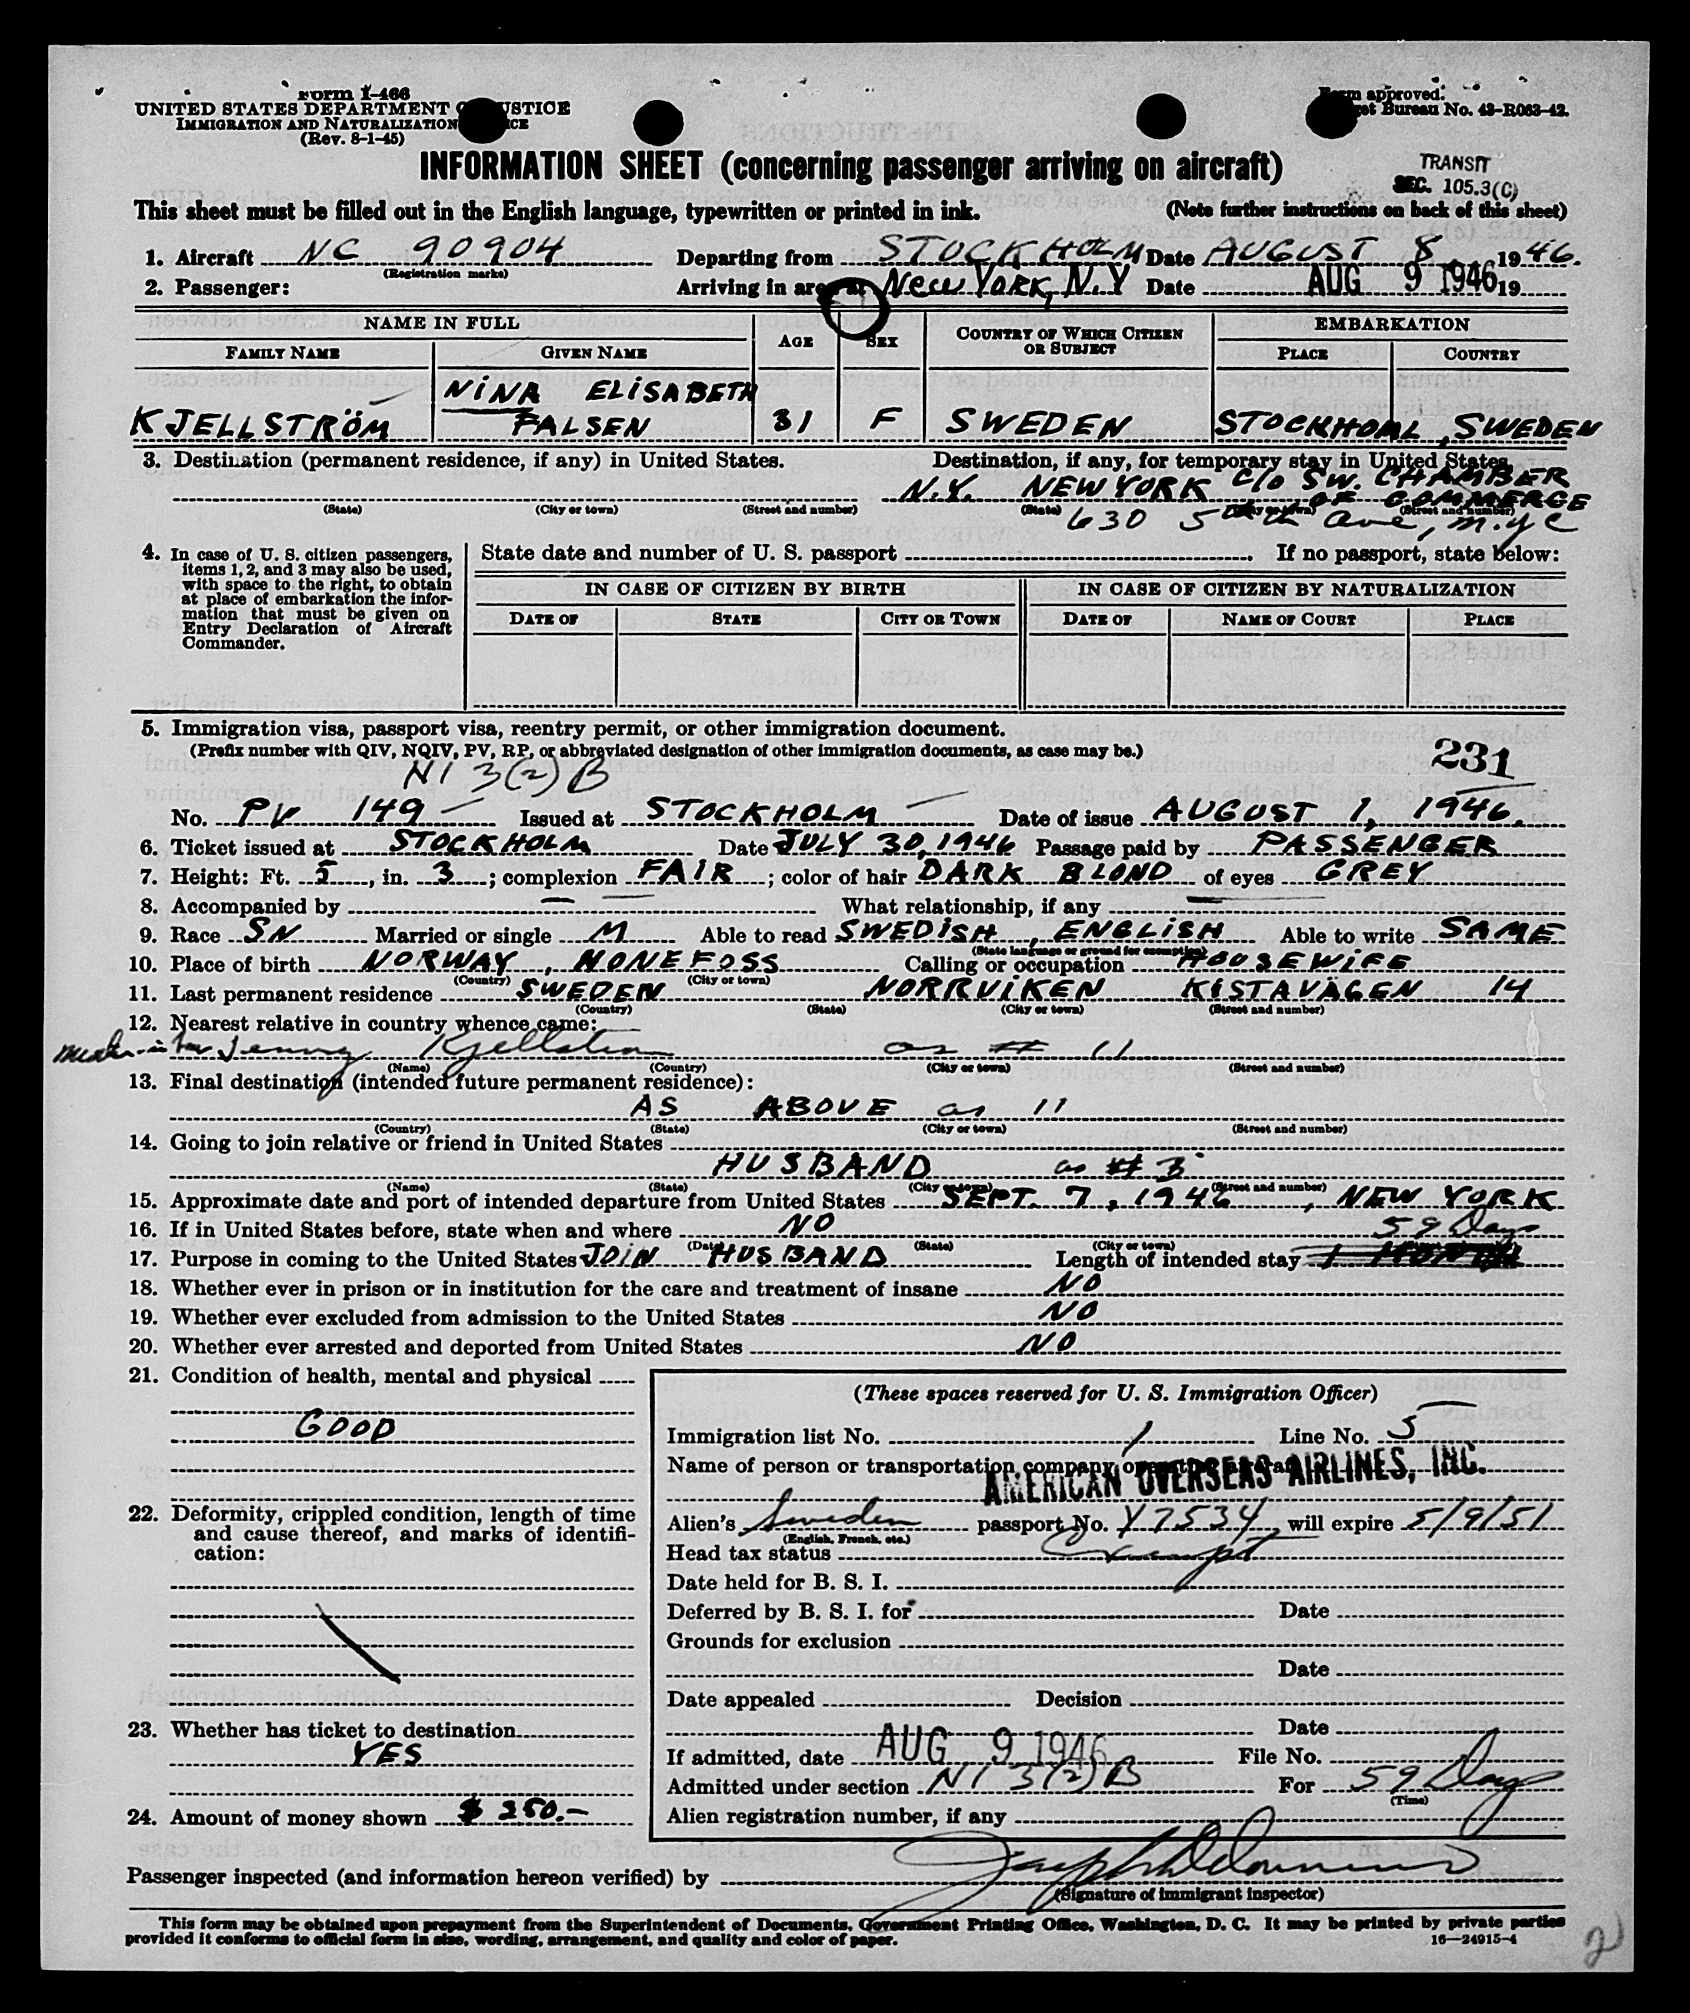 Form I-466
UNITED STATES DEPARTMENT OF JUSTICE
IMMIGRATION AND NATURALIZATION SERVICE
(Rev. 8-1-45)
Form approved.
Budget Bureau No. 43-R063-42.
INFORMATION SHEET (concerning passenger arriving on aircraft)
TRANSIT
SEC. 105.3(C)
This sheet must be filled out in the English language, typewritten or printed in ink.
(Note further instructions on back of this sheet)
1. Aircraft NC 90904 Departing from STOCKHOLM Date AUGUST 8, 1946.
(Registration marks)
2. Passenger: Arriving in area at New York, N.Y Date AUG 9 1946 19
NAME IN FULL AGE SEX COUNTRY OF WHICH CITIZEN OR SUBJECT EMBARKATION
FAMILY NAME GIVEN NAME PLACE COUNTRY
NINA ELISABETH
KJELLSTRÖM FALSEN 31 F SWEDEN STOCKHOML, SWEDEN
3. Destination (permanent residence, if any) in United States. Destination, if any, for temporary stay in United States.
N.Y. NEW YORK C/O SW. CHAMBER
OF COMMERCE
(State) (City or town) (Street and number) (State) (City or town) (Street and number)
630 5th ave, n.y c
4. In case of U. S. citizen passengers, items 1, 2, and 3 may also be used, with space to the right, to obtain at place of embarkation the information that must be given on Entry Declaration of Aircraft Commander.
State date and number of U. S. passport . If no passport, state below:
IN CASE OF CITIZEN BY BIRTH IN CASE OF CITIZEN BY NATURALIZATION
DATE OF STATE CITY OR TOWN DATE OF NAME OF COURT PLACE
5. Immigration visa, passport visa, reentry permit, or other immigration document.
(Prefix number with QIV, NQIV, PV, RP, or abbreviated designation of other immigration documents, as case may be.)
231
NI 3(2) B
No. PV 149 Issued at STOCKHOLM Date of issue AUGUST 1, 1946.
6. Ticket issued at STOCKHOLM Date JULY 30, 1946 Passage paid by PASSENGER
7. Height: Ft. 5, in. 3; complexion FAIR; color of hair DARK BLOND of eyes GREY
8. Accompanied by — What relationship, if any —
9. Race SN Married or single M Able to read SWEDISH, ENGLISH Able to write SAME
(State language or ground for exemption)
10. Place of birth NORWAY, HONEFOSS Calling or occupation HOUSEWIFE
(Country) (City or town)
11. Last permanent residence SWEDEN NORRVIKEN KISTAVÄGEN 14
(Country) (State) (City or town) (Street and number)
12. Nearest relative in country whence came:
Mother-in law Jenny Kjellstrom as # 11
(Name) (Country) (City or town) (Street and number)
13. Final destination (intended future permanent residence):
AS ABOVE as 11
(Country) (State) (City or town) (Street and number)
14. Going to join relative or friend in United States
HUSBAND as # 3
(Name) (State) (City or town) (Street and number)
15. Approximate date and port of intended departure from United States SEPT. 7, 1946, NEW YORK
16. If in United States before, state when and where NO
(Date) (State) (City or town)
59 Days
17. Purpose in coming to the United States JOIN HUSBAND Length of intended stay 1 MONTH
18. Whether ever in prison or in institution for the care and treatment of insane NO
19. Whether ever excluded from admission to the United States NO
20. Whether ever arrested and deported from United States NO
21. Condition of health, mental and physical
GOOD
22. Deformity, crippled condition, length of time and cause thereof, and marks of identification:
23. Whether has ticket to destination
YES
24. Amount of money shown $ 250.—
(These spaces reserved for U. S. Immigration Officer)
Immigration list No. 1 Line No. 5
Name of person or transportation company operating aircraft
AMERICAN OVERSEAS AIRLINES, INC.
Alien's Sweden passport No. Y7534, will expire 5/9/51
(English, French, etc.)
Head tax status Exempt
Date held for B. S. I.
Deferred by B. S. I. for Date
Grounds for exclusion
Date
Date appealed Decision
Date
If admitted, date AUG 9 1946 File No.
Admitted under section NI 3(2) B For 59 Days
(Time)
Alien registration number, if any
Passenger inspected (and information hereon verified) by
(Signature of immigrant inspector)
This form may be obtained upon prepayment from the Superintendent of Documents, Government Printing Office, Washington, D. C. It may be printed by private parties
provided it conforms to official form in size, wording, arrangement, and quality and color of paper.
16—24915-4
2